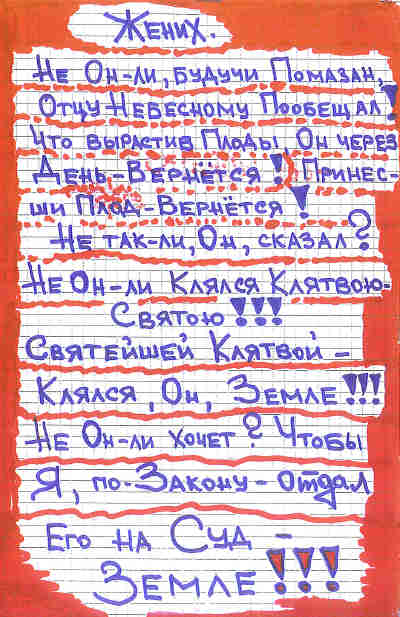 Жених.
Не Он-ли, будучи Помазан,
Отцу Небесному Пообещал!
Что вырастив Плоды, Он через
День-Вернётся! Принес-
ши Плод-Вернётся!
Не так-ли, Он, сказал?
Не Он-ли Клялся Клятвою-
Святою!!!
Святейшей Клятвой -
Клялся, Он, Земле!!!
Не Он-ли хочет? Чтобы
Я, по-Закону-Отдал
Его на Суд -
Земле!!!